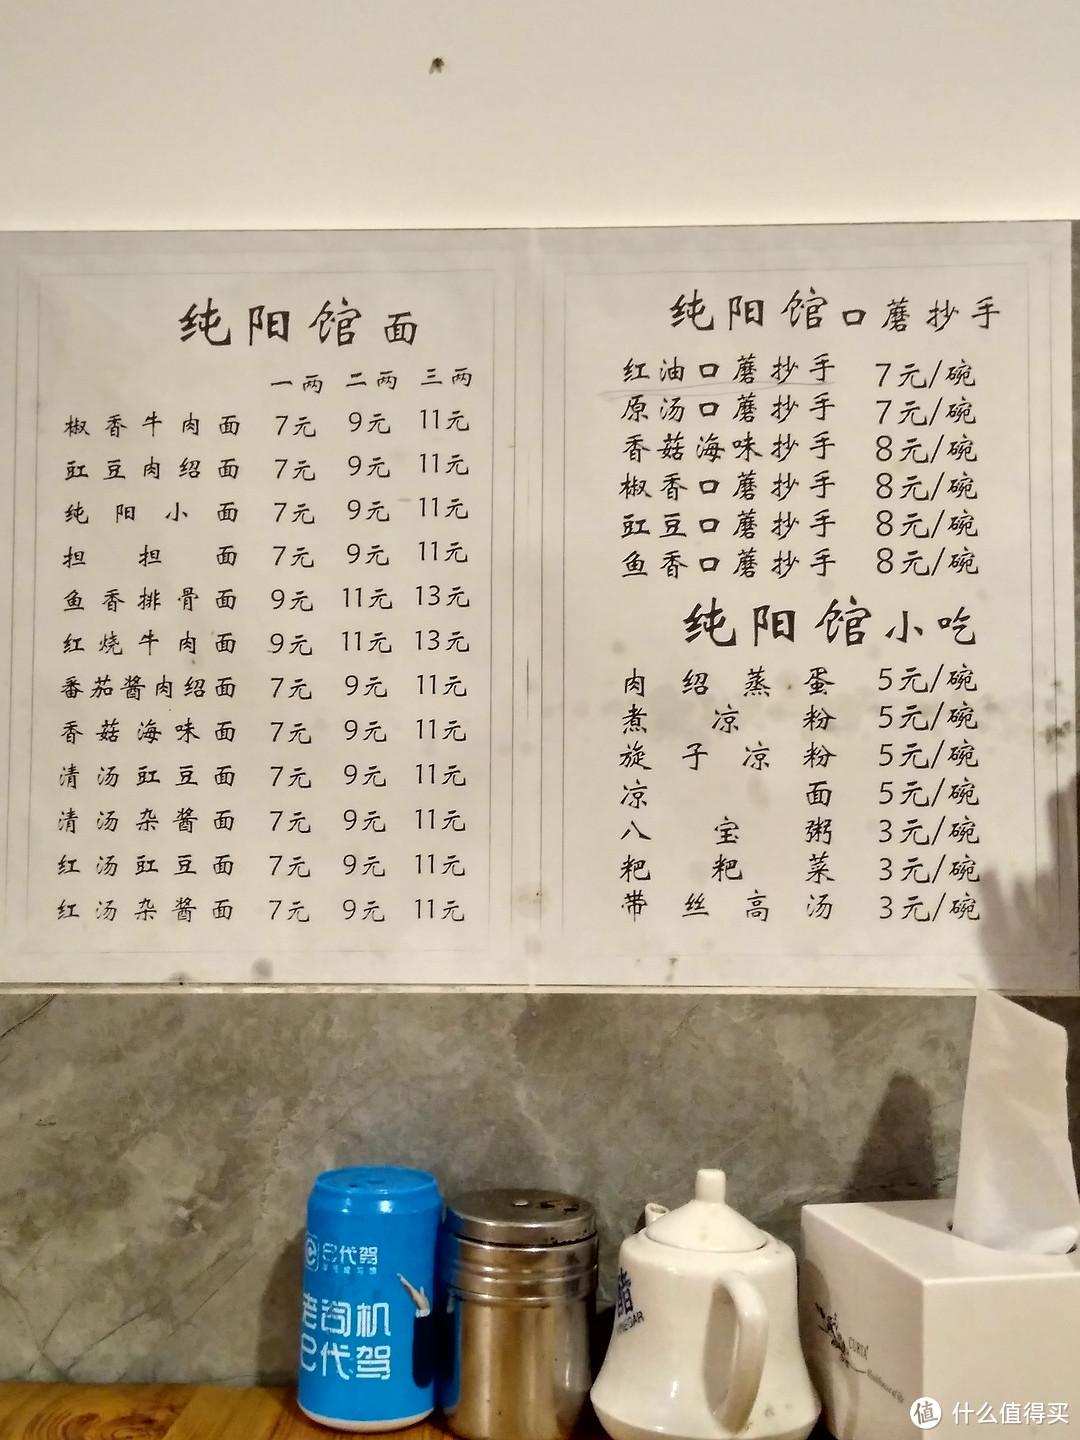 纯阳馆面
一两 二两 三两
椒香牛肉面 7元 9元 11元
豇豆肉绍面 7元 9元 11元
纯阳小面 7元 9元 11元
担担面 7元 9元 11元
鱼香排骨面 9元 11元 13元
红烧牛肉面 9元 11元 13元
番茄酱肉绍面 7元 9元 11元
香菇海味面 7元 9元 11元
清汤豇豆面 7元 9元 11元
清汤杂酱面 7元 9元 11元
红汤豇豆面 7元 9元 11元
红汤杂酱面 7元 9元 11元
纯阳馆口蘑抄手
红油口蘑抄手 7元/碗
原汤口蘑抄手 7元/碗
香菇海味抄手 8元/碗
椒香口蘑抄手 8元/碗
豇豆口蘑抄手 8元/碗
鱼香口蘑抄手 8元/碗
纯阳馆小吃
肉绍蒸蛋 5元/碗
煮凉粉 5元/碗
旋子凉粉 5元/碗
凉面 5元/碗
八宝粥 3元/碗
粑粑菜 3元/碗
带丝高汤 3元/碗
代驾
老司机
代驾
醋
VINEGAR
值 什么值得买